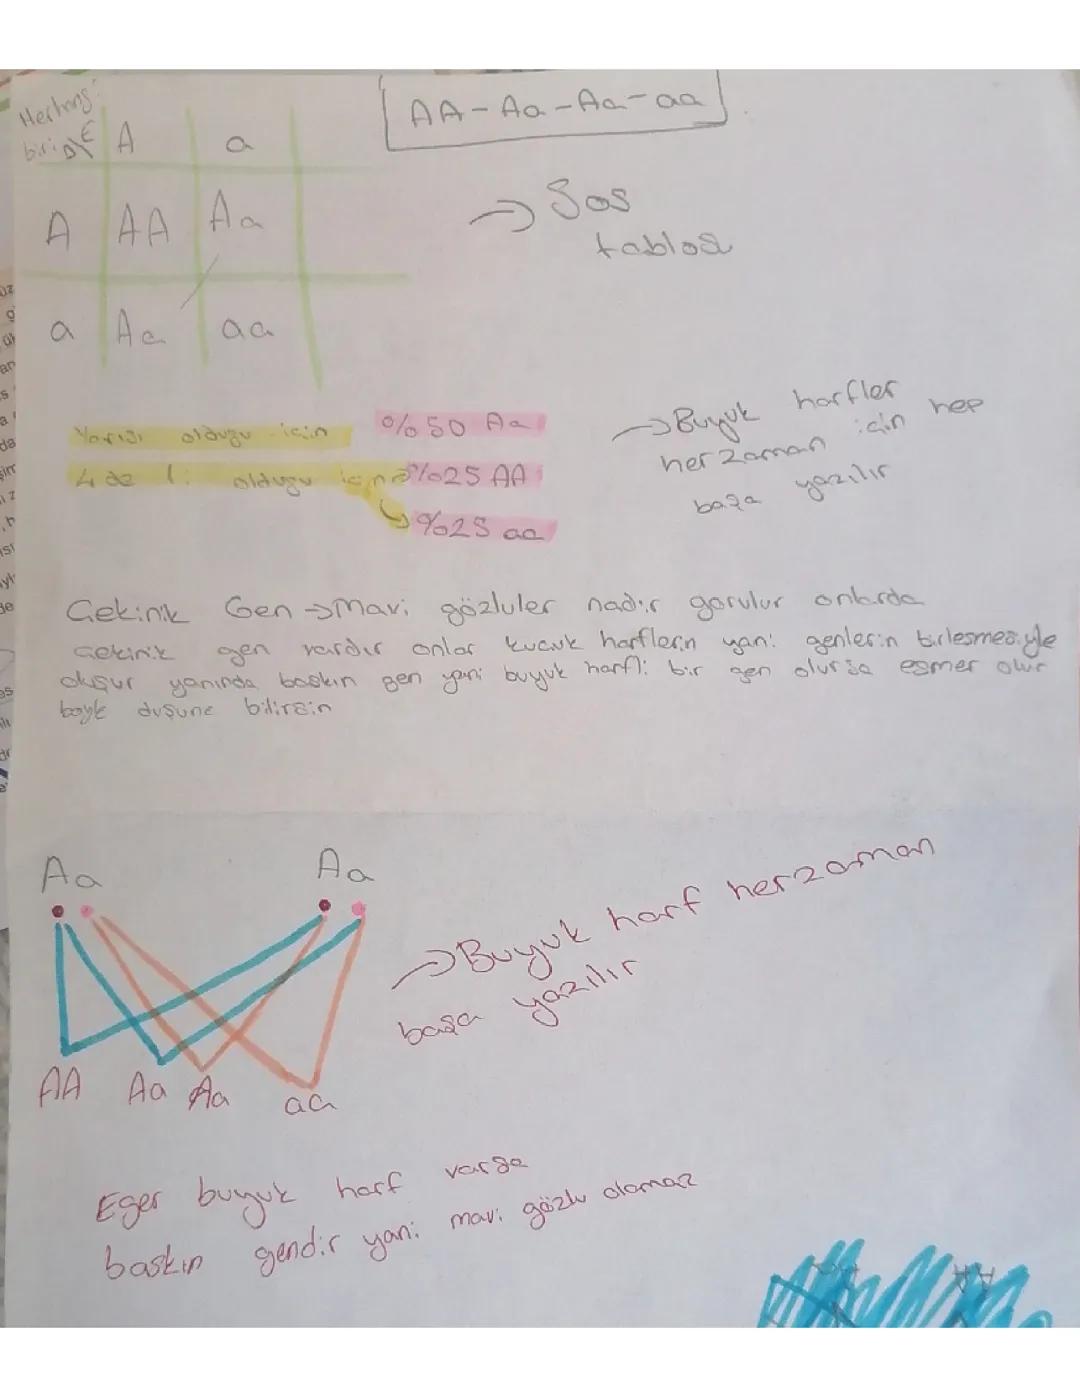 AA-Aa-Aa-aa
Herhangi
biri D E A a
A AA Aa
a Aa aa
→ Sos
tablosu
Yarısı olduğu için %50 Aa
4 de 1 i olduğu için → %25 AA
%25 aa
→ Buyuk harfler
herzaman için hep
başa yazılır
Çekinik Gen → Mavi gözluler nadir gorulur onlarda
çekinik gen vardır onlar kucuk harflerin yani genlerin birlesmesiyle
oluşur yanında baskın gen yani buyuk harfli bir gen olursa esmer olur
boyle duşune bilirsin
Aa Aa
→ Buyuk harf herzaman
başa yazılır
AA Aa Aa aa
Eger buyuk harf varsa
baskın gendir yani mavi gözlu olamaz